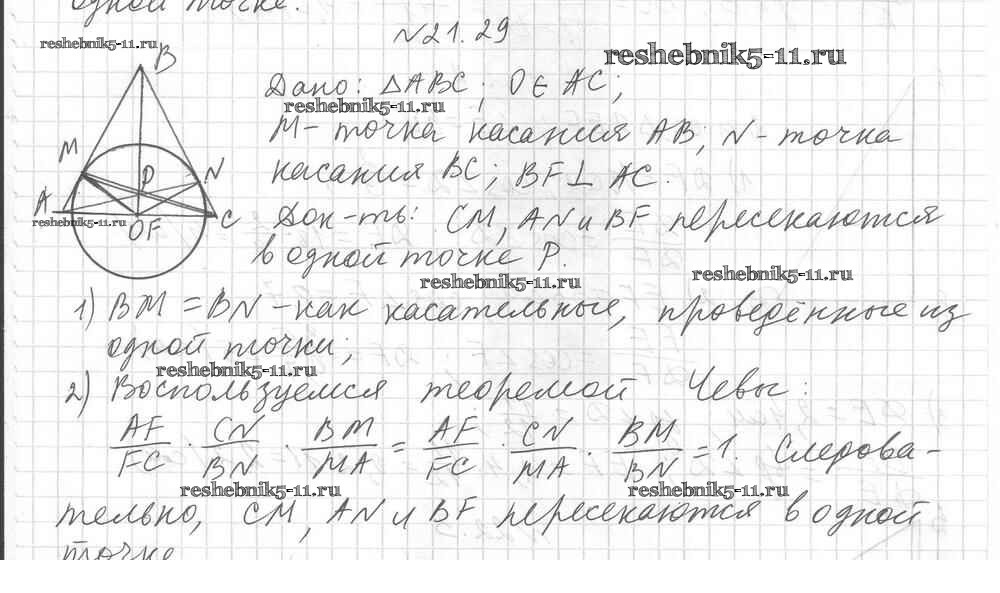 одной точке.
№21.29
reshebnik5-11.ru
reshebnik5-11.ru
B
Дано: △ABC; O∈AC;
reshebnik5-11.ru
M - точка касания AB; N - точка
касания BC; BF⊥AC.
M
P
N
A
C
O F
reshebnik5-11.ru
Док-ть: CM, AN и BF пересекаются
в одной точке P.
reshebnik5-11.ru
reshebnik5-11.ru
1) BM = BN - как касательные, проведённые из
одной точки;
reshebnik5-11.ru
2) Воспользуемся теоремой Чевы:
AF/FC · CN/BN · BM/MA = AF/FC · CN/MA · BM/BN = 1. Следова-
reshebnik5-11.ru
reshebnik5-11.ru
тельно, CM, AN и BF пересекаются в одной
точке